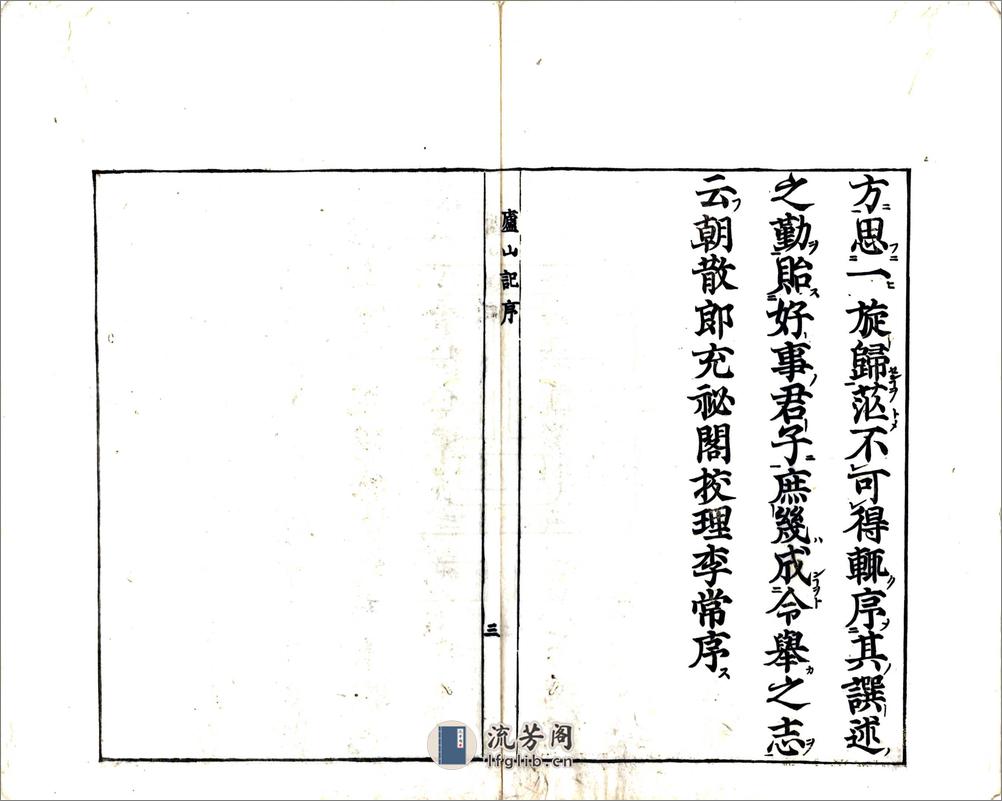 方思一旋歸茫不可得輒序其譔述
之勤貽好事君子庶幾成令舉之志
云朝散郎充祕閣挍理李常序
廬山記序
三
流芳阁
lfglib.cn